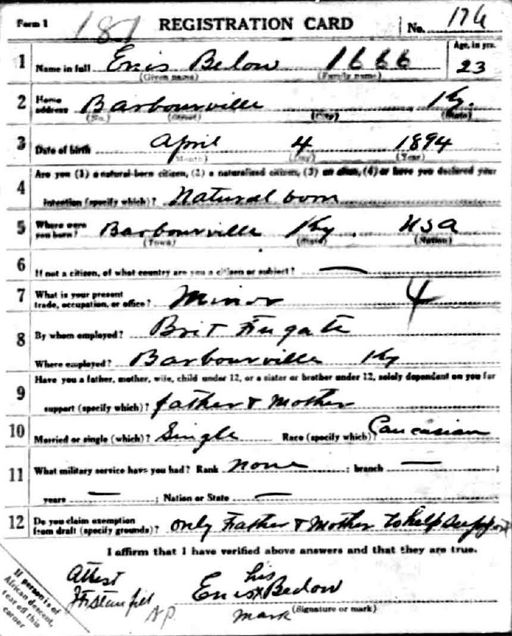 Form 1 187 REGISTRATION CARD No. 176
1 Name in full Enis Below 1666 Age, in yrs. 23
(Given name) (Family name)
2 Home address Barbourville Ky.
(No.) (Street) (City) (State)
3 Date of birth April 4 1894
(Month) (Day) (Year)
4 Are you (1) a natural-born citizen, (2) a naturalized citizen, (3) an alien, (4) or have you declared your
intention (specify which)? Natural born
5 Where were you born? Barbourville Ky. USA
(Town) (State) (Nation)
6 If not a citizen, of what country are you a citizen or subject? —
7 What is your present trade, occupation, or office? Miner 4
8 By whom employed? Brit Fugate
Where employed? Barbourville Ky
9 Have you a father, mother, wife, child under 12, or a sister or brother under 12, solely dependent on you for
support (specify which)? father & Mother
10 Married or single (which)? Single Race (specify which)? Caucasian
11 What military service have you had? Rank none ; branch — ;
years — ; Nation or State —
12 Do you claim exemption from draft (specify grounds)? only Father & Mother to help support
I affirm that I have verified above answers and that they are true.
If person is of African descent, tear off this corner
Attest his
Enis x Below
mark (Signature or mark)